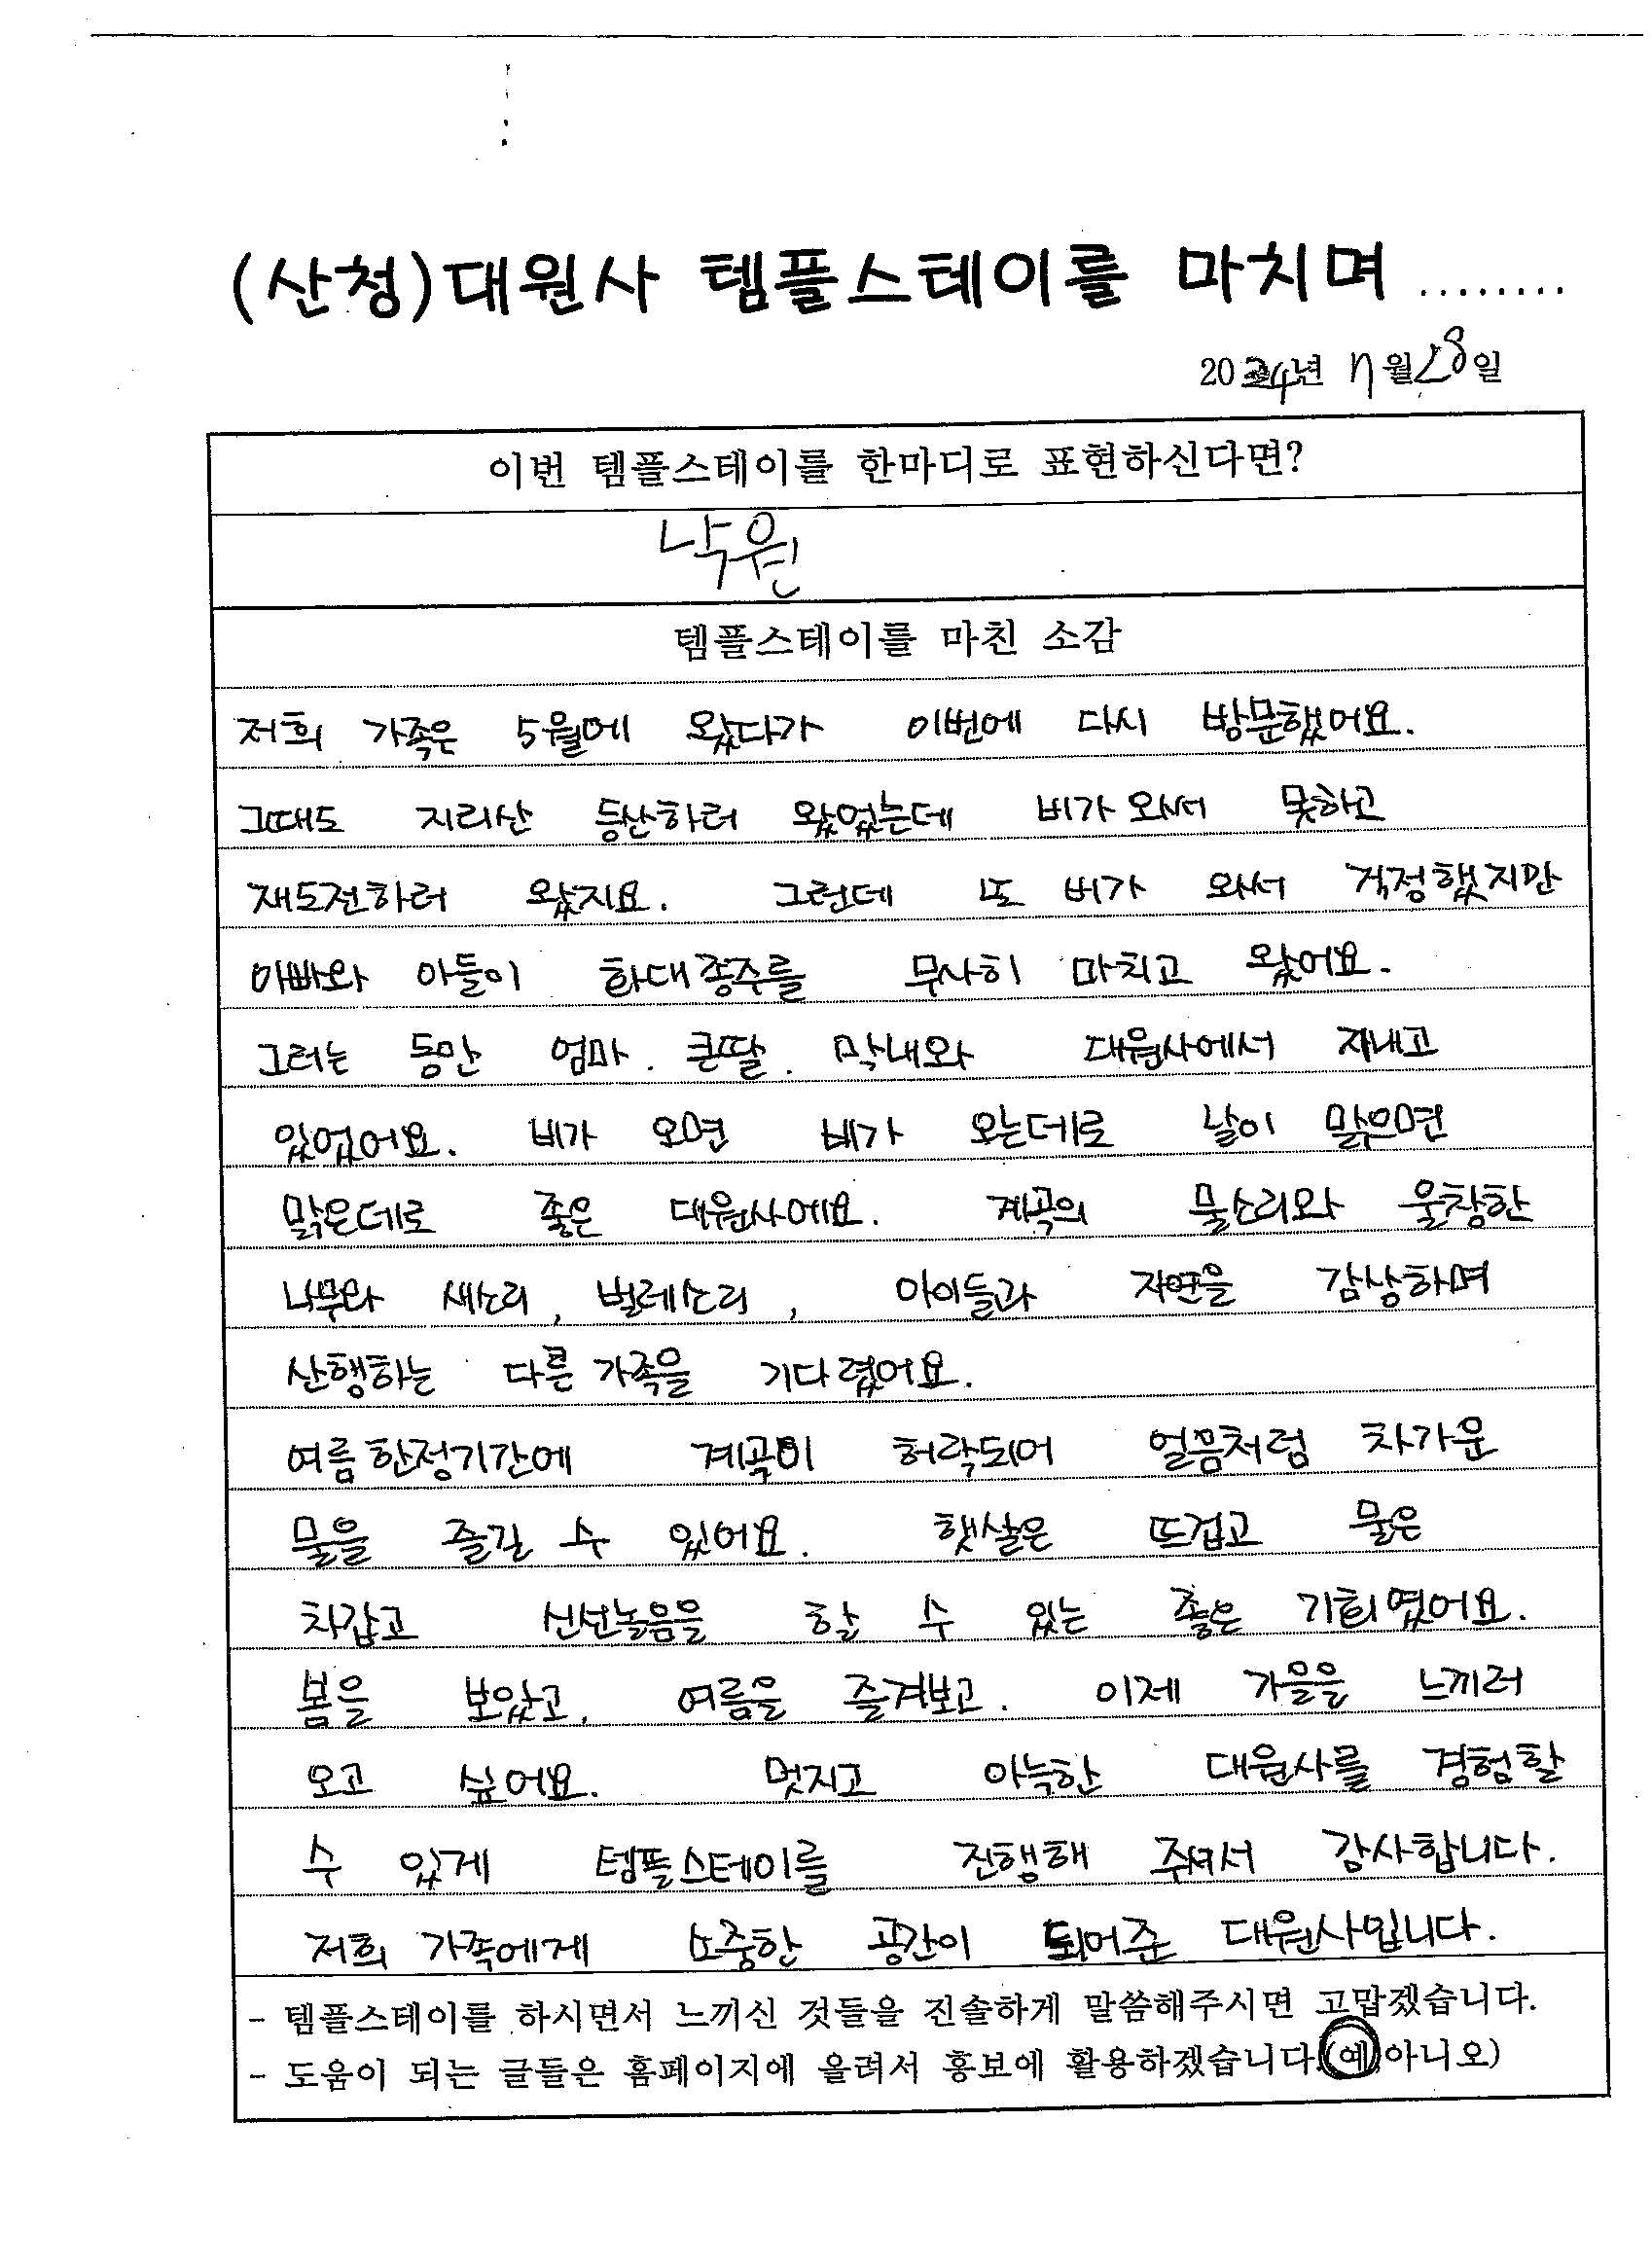 (산청)대원사 템플스테이를 마치며........
2024년 7월 28일
이번 템플스테이를 한마디로 표현하신다면?
낙원
템플스테이를 마친 소감
저희 가족은 5월에 왔다가 이번에 다시 방문했어요.
그때도 지리산 등산하러 왔었는데 비가 와서 못하고
재도전하러 왔지요. 그런데 또 비가 와서 걱정했지만
아빠와 아들이 화대종주를 무사히 마치고 왔어요.
그러는 동안 엄마. 큰딸. 막내와 대원사에서 지내고
있었어요. 비가 오면 비가 오는데로 날이 맑으면
맑은데로 좋은 대원사에요. 계곡의 물소리와 울창한
나무와 새소리, 벌레소리, 아이들과 자연을 감상하며
산행하는 다른 가족을 기다렸어요.
여름 한정기간에 계곡이 허락되어 얼음처럼 차가운
물을 즐길 수 있어요. 햇살은 뜨겁고 물은
차갑고 신선놀음을 할 수 있는 좋은 기회였어요.
봄을 보았고, 여름을 즐겨보고. 이제 가을을 느끼러
오고 싶어요. 멋지고 아늑한 대원사를 경험할
수 있게 템플스테이를 진행해 주셔서 감사합니다.
저희 가족에게 소중한 공간이 되어준 대원사입니다.
- 템플스테이를 하시면서 느끼신 것들을 진솔하게 말씀해주시면 고맙겠습니다.
- 도움이 되는 글들은 홈페이지에 올려서 홍보에 활용하겠습니다.(예,아니오)